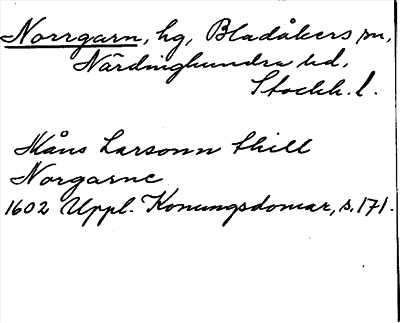 Norrgarn, hg, Bladåkers sn,
Närdinghundra hd,
Stockh. l.
Måns Larsonn thill
Norgarne
1602 Uppl. Konungsdomar, s. 171.